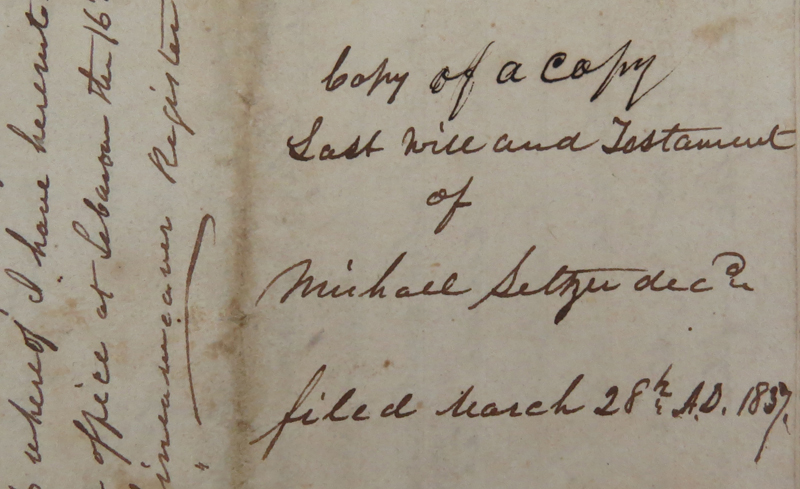 Copy of a Copy
Last Will and Testament
of
Michael Seltzer decd
filed March 28th A.D. 1837.
whereof I have hereunto
office at Lebanon the 16
Register